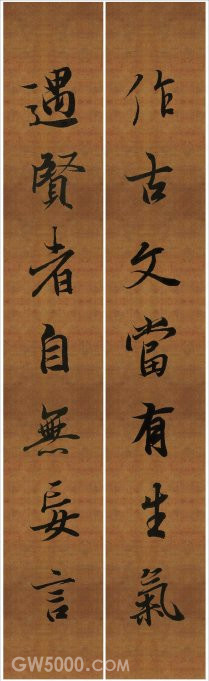 作古文當有生氣
遇賢者自無妄言
GW5000.COM